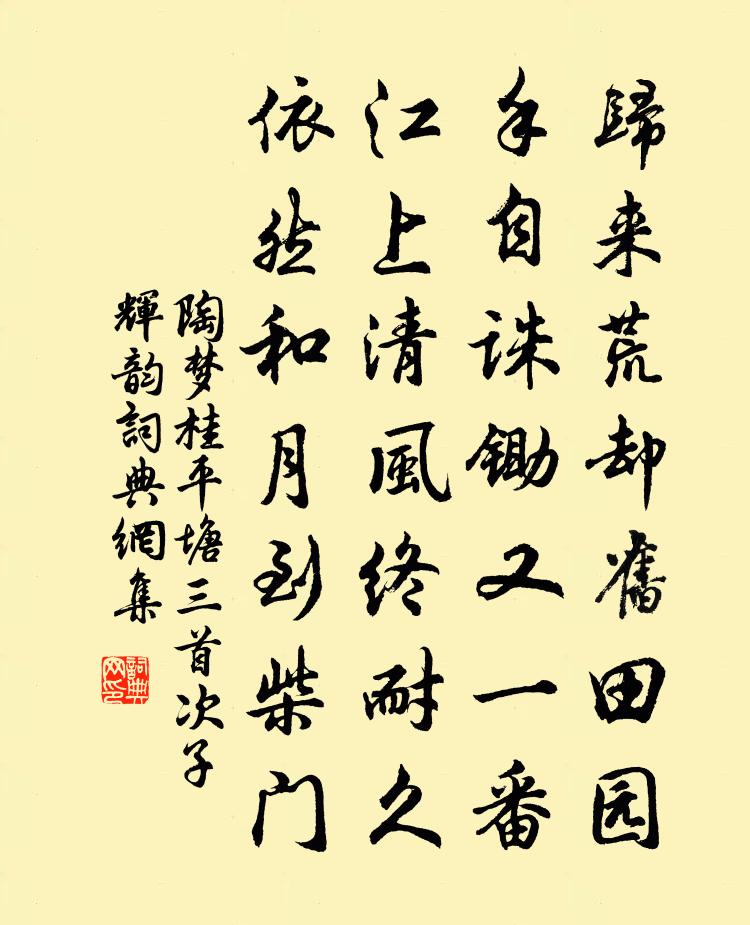 歸来荒却舊田园
手自誅鋤又一番
江上清風终耐久
依然和月到柴门
陶梦桂平塘三首次子
輝韵詞典網集
詞典网印